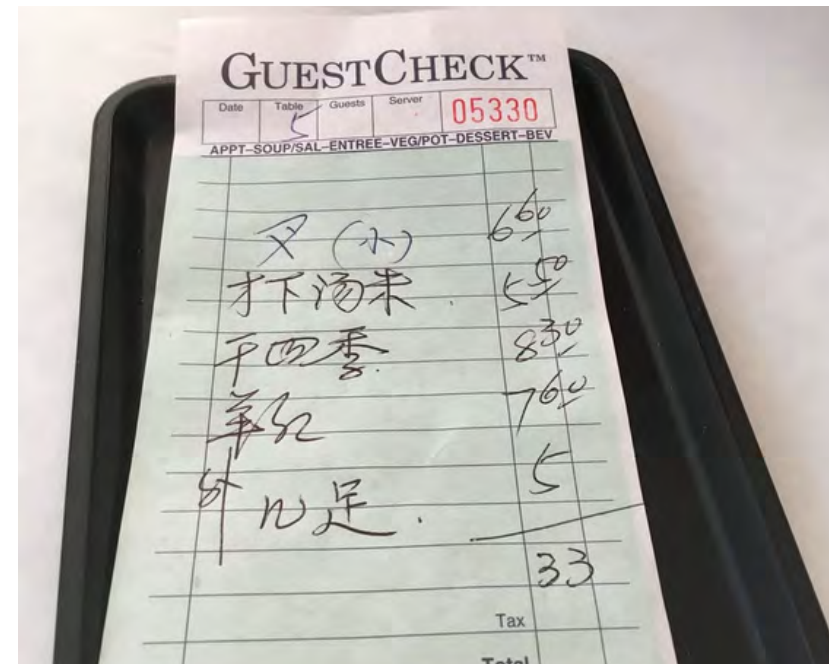 GUESTCHECK™
Date Table Guests Server 05330
5
APPT–SOUP/SAL–ENTREE–VEG/POT–DESSERT–BEV
叉 (小) 6.60
才下汤末 . 5.50
干四季 8.30
羊 7.60
外 足 . 5
33
Tax
Total